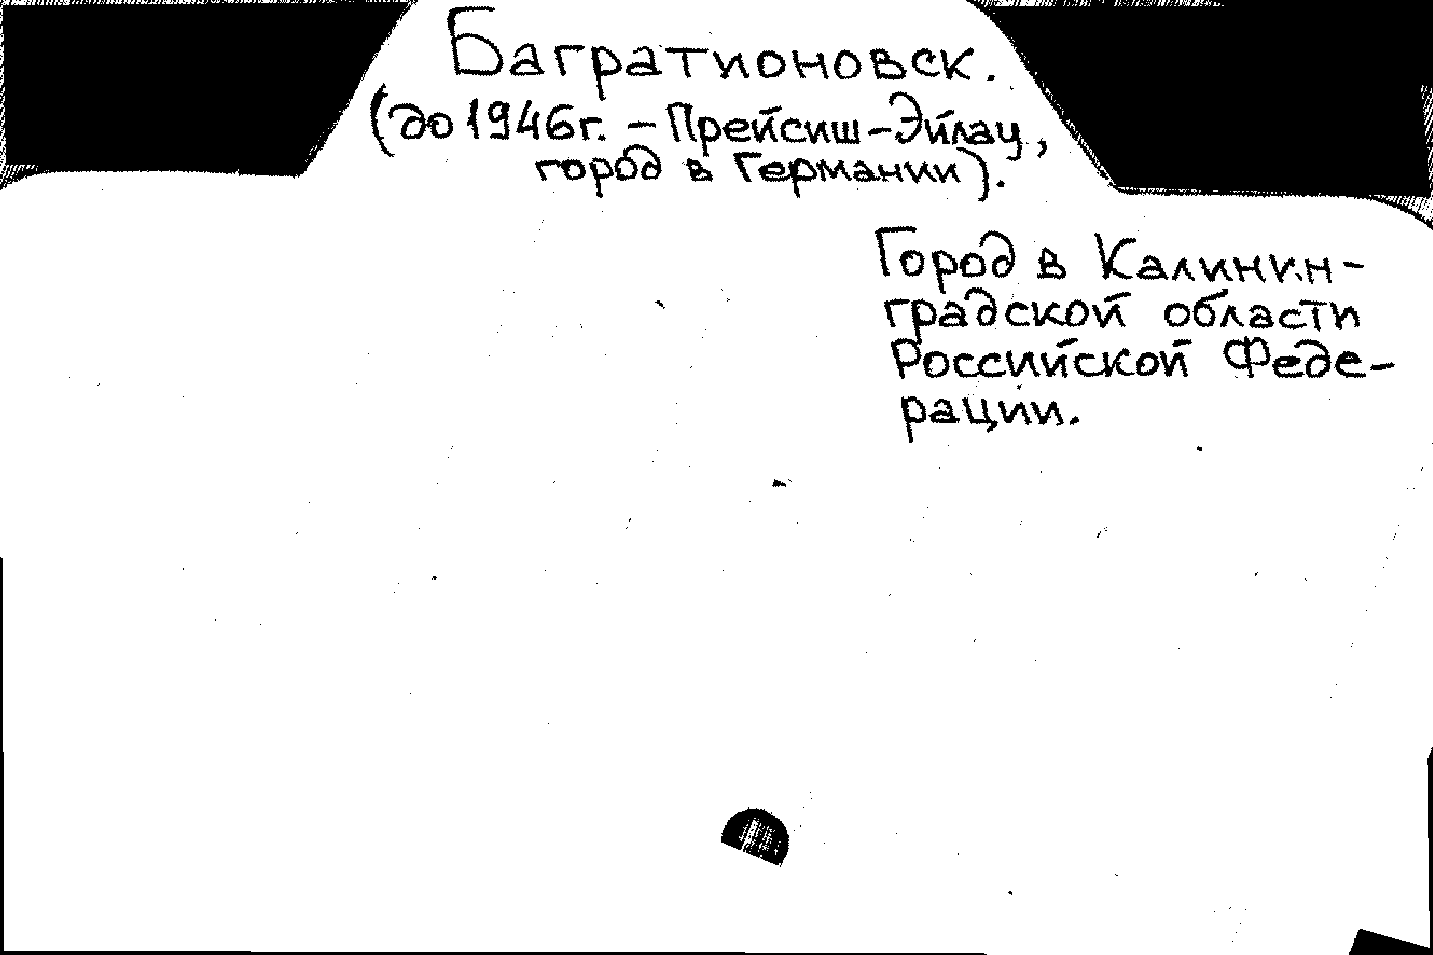 Багратионовск.
(до 1946г. – Прейсиш-Эйлау,
город в Германии).
Город в Калинин-
градской области
Российской Феде-
рации.